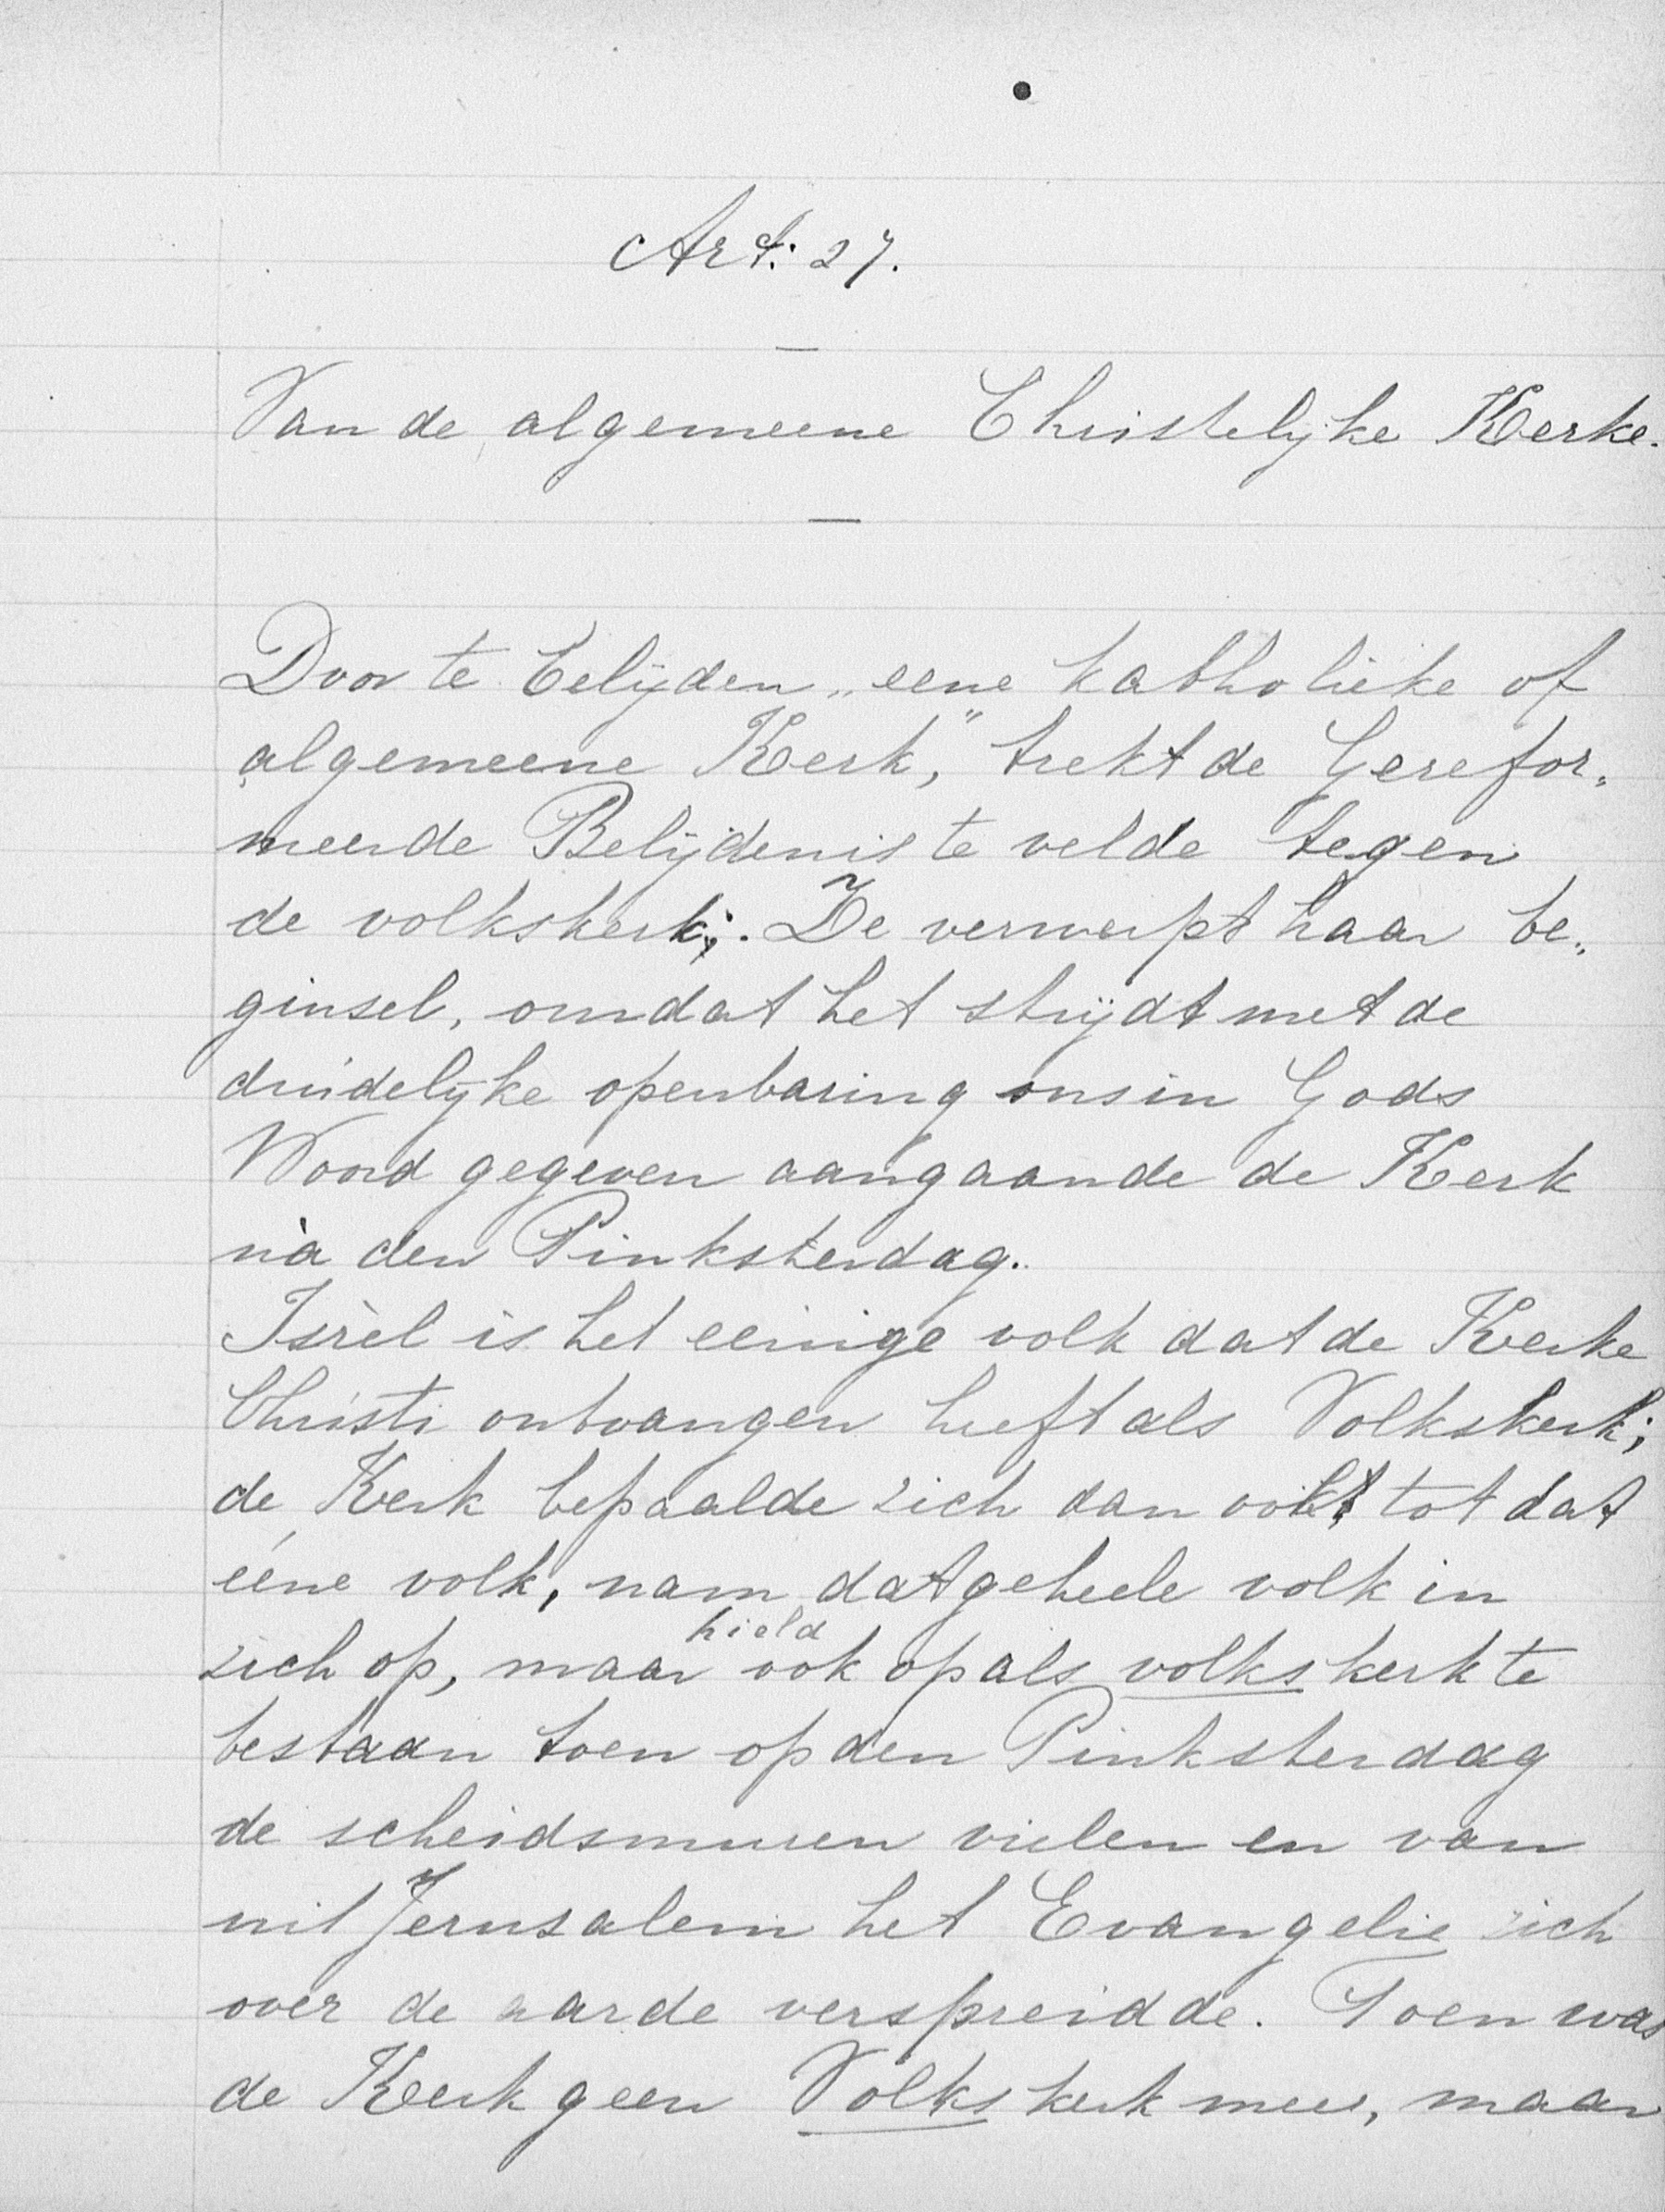 Art: 27.
Van de algemeene Christelijke Kerke.
Door te belijden „eene katholieke of
algemeene Kerk," trekt de Gerefor„
meerde Belijdenis te velde tegen
de volkskerk;. Ze verwerpt haar be„
ginsel, omdat het strijdt met de
duidelijke openbaring ons in Gods
Woord gegeven aangaande de Kerk
nà den Pinksterdag.
Isrèl is het eenige volk dat de Kerke
Christi ontvangen heeft als Volkskerk;
de Kerk bepaalde zich dan ook tot dat
ééne volk, nam dat geheele volk in
zich op, maar hield ook op als volkskerk te
bestaan toen op den Pinksterdag
de scheidsmuren vielen en van
uit Jerusalem het Evangelie zich
over de aarde verspreidde. Toen was
de Kerk geen Volkskerk meer, maar